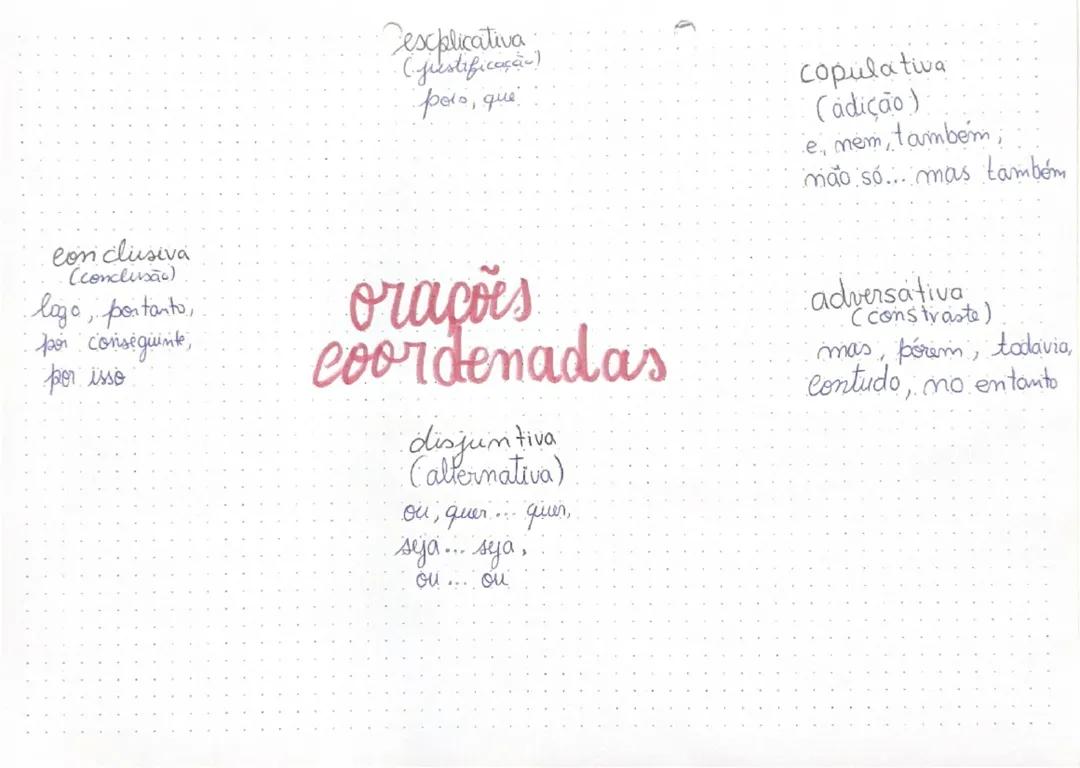 explicativa
(justificação)
pois, que
copulativa
(adição)
e, nem, também,
não só... mas também
conclusiva
(conclusão)
logo, portanto,
por conseguinte,
por isso
orações
coordenadas
adversativa
(constraste)
mas, pórem, todavia,
contudo, no entanto
disjuntiva
(alternativa)
ou, quer... quer,
seja... seja,
ou... ou